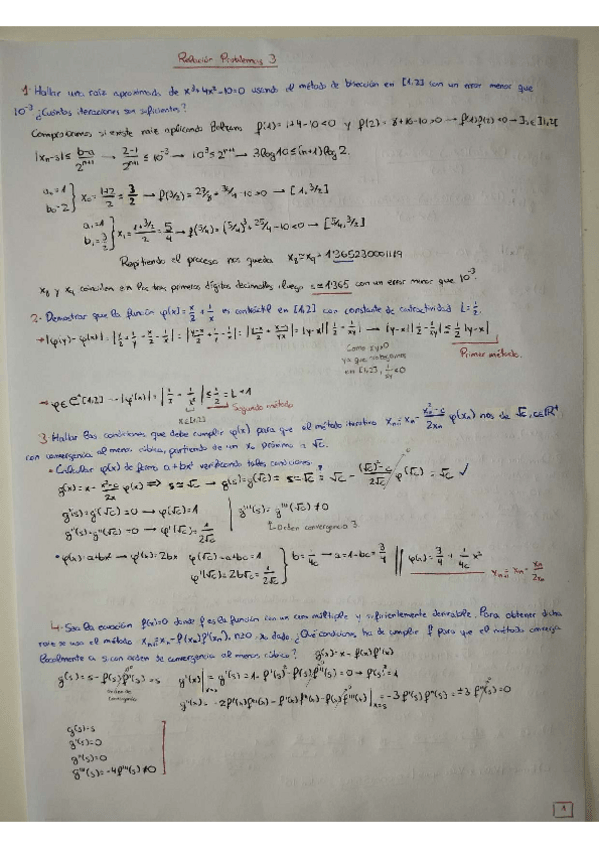 Relación Problemas 3
1. Hallar una raíz aproximada de x³+4x²-10=0 usando el método de bisección en [1,2] con un error menor que
10⁻³ ¿Cuántas iteraciones son suficientes?
Comprobamos si existe raíz aplicando Bolzano f(1)=1+4-10<0 y f(2)=8+16-10>0 → f(1)f(2)<0 → ∃s∈]1,2[
|xn-s| ≤ (b-a)/2ⁿ⁺¹ → (2-1)/2ⁿ⁺¹ ≤ 10⁻³ → 10³ ≤ 2ⁿ⁺¹ → 3log10 ≤ (n+1)log2
a₀=1 b₀=2 } x₀ = (1+2)/2 = 3/2 → f(3/2) = 27/8 + -10>0 → [1, 3/2]
a₁=1 b₁=3/2 } x₁ = (1+3/2)/2 = 5/4 → f(5/4) = (5/4)³ + 25/4 -10<0 → [5/4, 3/2]
Repitiendo el proceso nos queda x₈ ≈ x₉ = 1'365230001119
x₈ y x₉ coinciden en las tres primeros dígitos decimales luego s≈1'365 con un error menor que 10⁻³.
2. Demostrar que la función φ(x) = x/2 + 1/x es contráctil en [1,2] con constante de contractividad L=1/2.
→ |φ(y)-φ(x)| = |y/2 + 1/y - x/2 - 1/x| = |(y-x)/2 + 1/y - 1/x| = |(y-x)/2 + (x-y)/yx| = |y-x| |1/2 - 1/xy| → |y-x| |1/2 - 1/xy| ≤ 1/2 |y-x|
Como xy>0
ya que
en [1,2],
Primer método.
→ φ∈C¹[1,2] → |φ'(x)| = |1/2 - 1/x²| ≤ 1/2 = L < 1
x∈[1,2]
Segundo método
3. Hallar las condiciones que debe cumplir φ(x) para que el método iterativo xn+1 = xn - (xn²-c)/2xn φ(xn) nos de √c, c∈ℝ⁺
con convergencia al menos cúbica, partiendo de un x₀ próximo a √c.
• Calcular φ(x) de forma a+bx² verificando tales condiciones.
g(x) = x - (x²-c)/2x φ(x) ⟹ s=√c → g(s)=g(√c)=s=√c = √c - ((√c)²-c)/2√c φ(√c) = √c ✓
g'(s)=g'(√c)=0 → φ(√c)=1
g''(s)=g''(√c)=0 → φ'(√c) = 1/2√c
g'''(s)=g'''(√c)≠0
↳ Orden convergencia 3
• φ(x)=a+bx² → φ'(x)=2bx φ(√c)=a+bc=1
φ'(√c)=2b√c = 1/2√c } b = 1/4c → a=1-bc = 3/4 ‖ φ(x) = 3/4 + 1/4c x²
xn+1 = xn -
4. Sea la ecuación f(x)=0 donde f es la función con un cero múltiple y suficientemente derivable. Para obtener dicha
raíz se usa el método xn+1 = xn - f(xn)f'(xn), n≥0 x₀ dado ¿Qué condiciones ha de cumplir f para que el método converja
localmente a s con orden de convergencia al menos cúbico? g(x)=x-f(x)f'(x)
g(s)=s-f(s)f'(s)=s g'(x)|x=s = g'(s) = 1-f'(s)²-f(s)f''(s)=0 → f'(s)²=1
g''(x) = -2f'(x)f''(x)-f'(x)f''(x)-f(x)f'''(x)|x=s = -3f'(s)f''(s) = ±3f''(s)=0
g(s)=s
g'(s)=0
g''(s)=0
g'''(s)=-4f'''(s)≠0
1